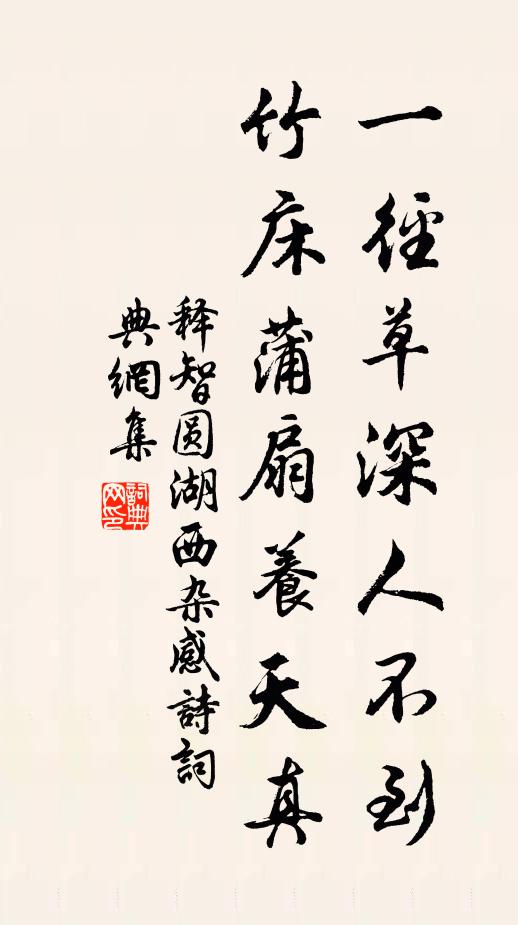 一徑草深人不到
竹床蒲扇養天真
释智圆湖西杂感詩詞
典網集
詞典网印